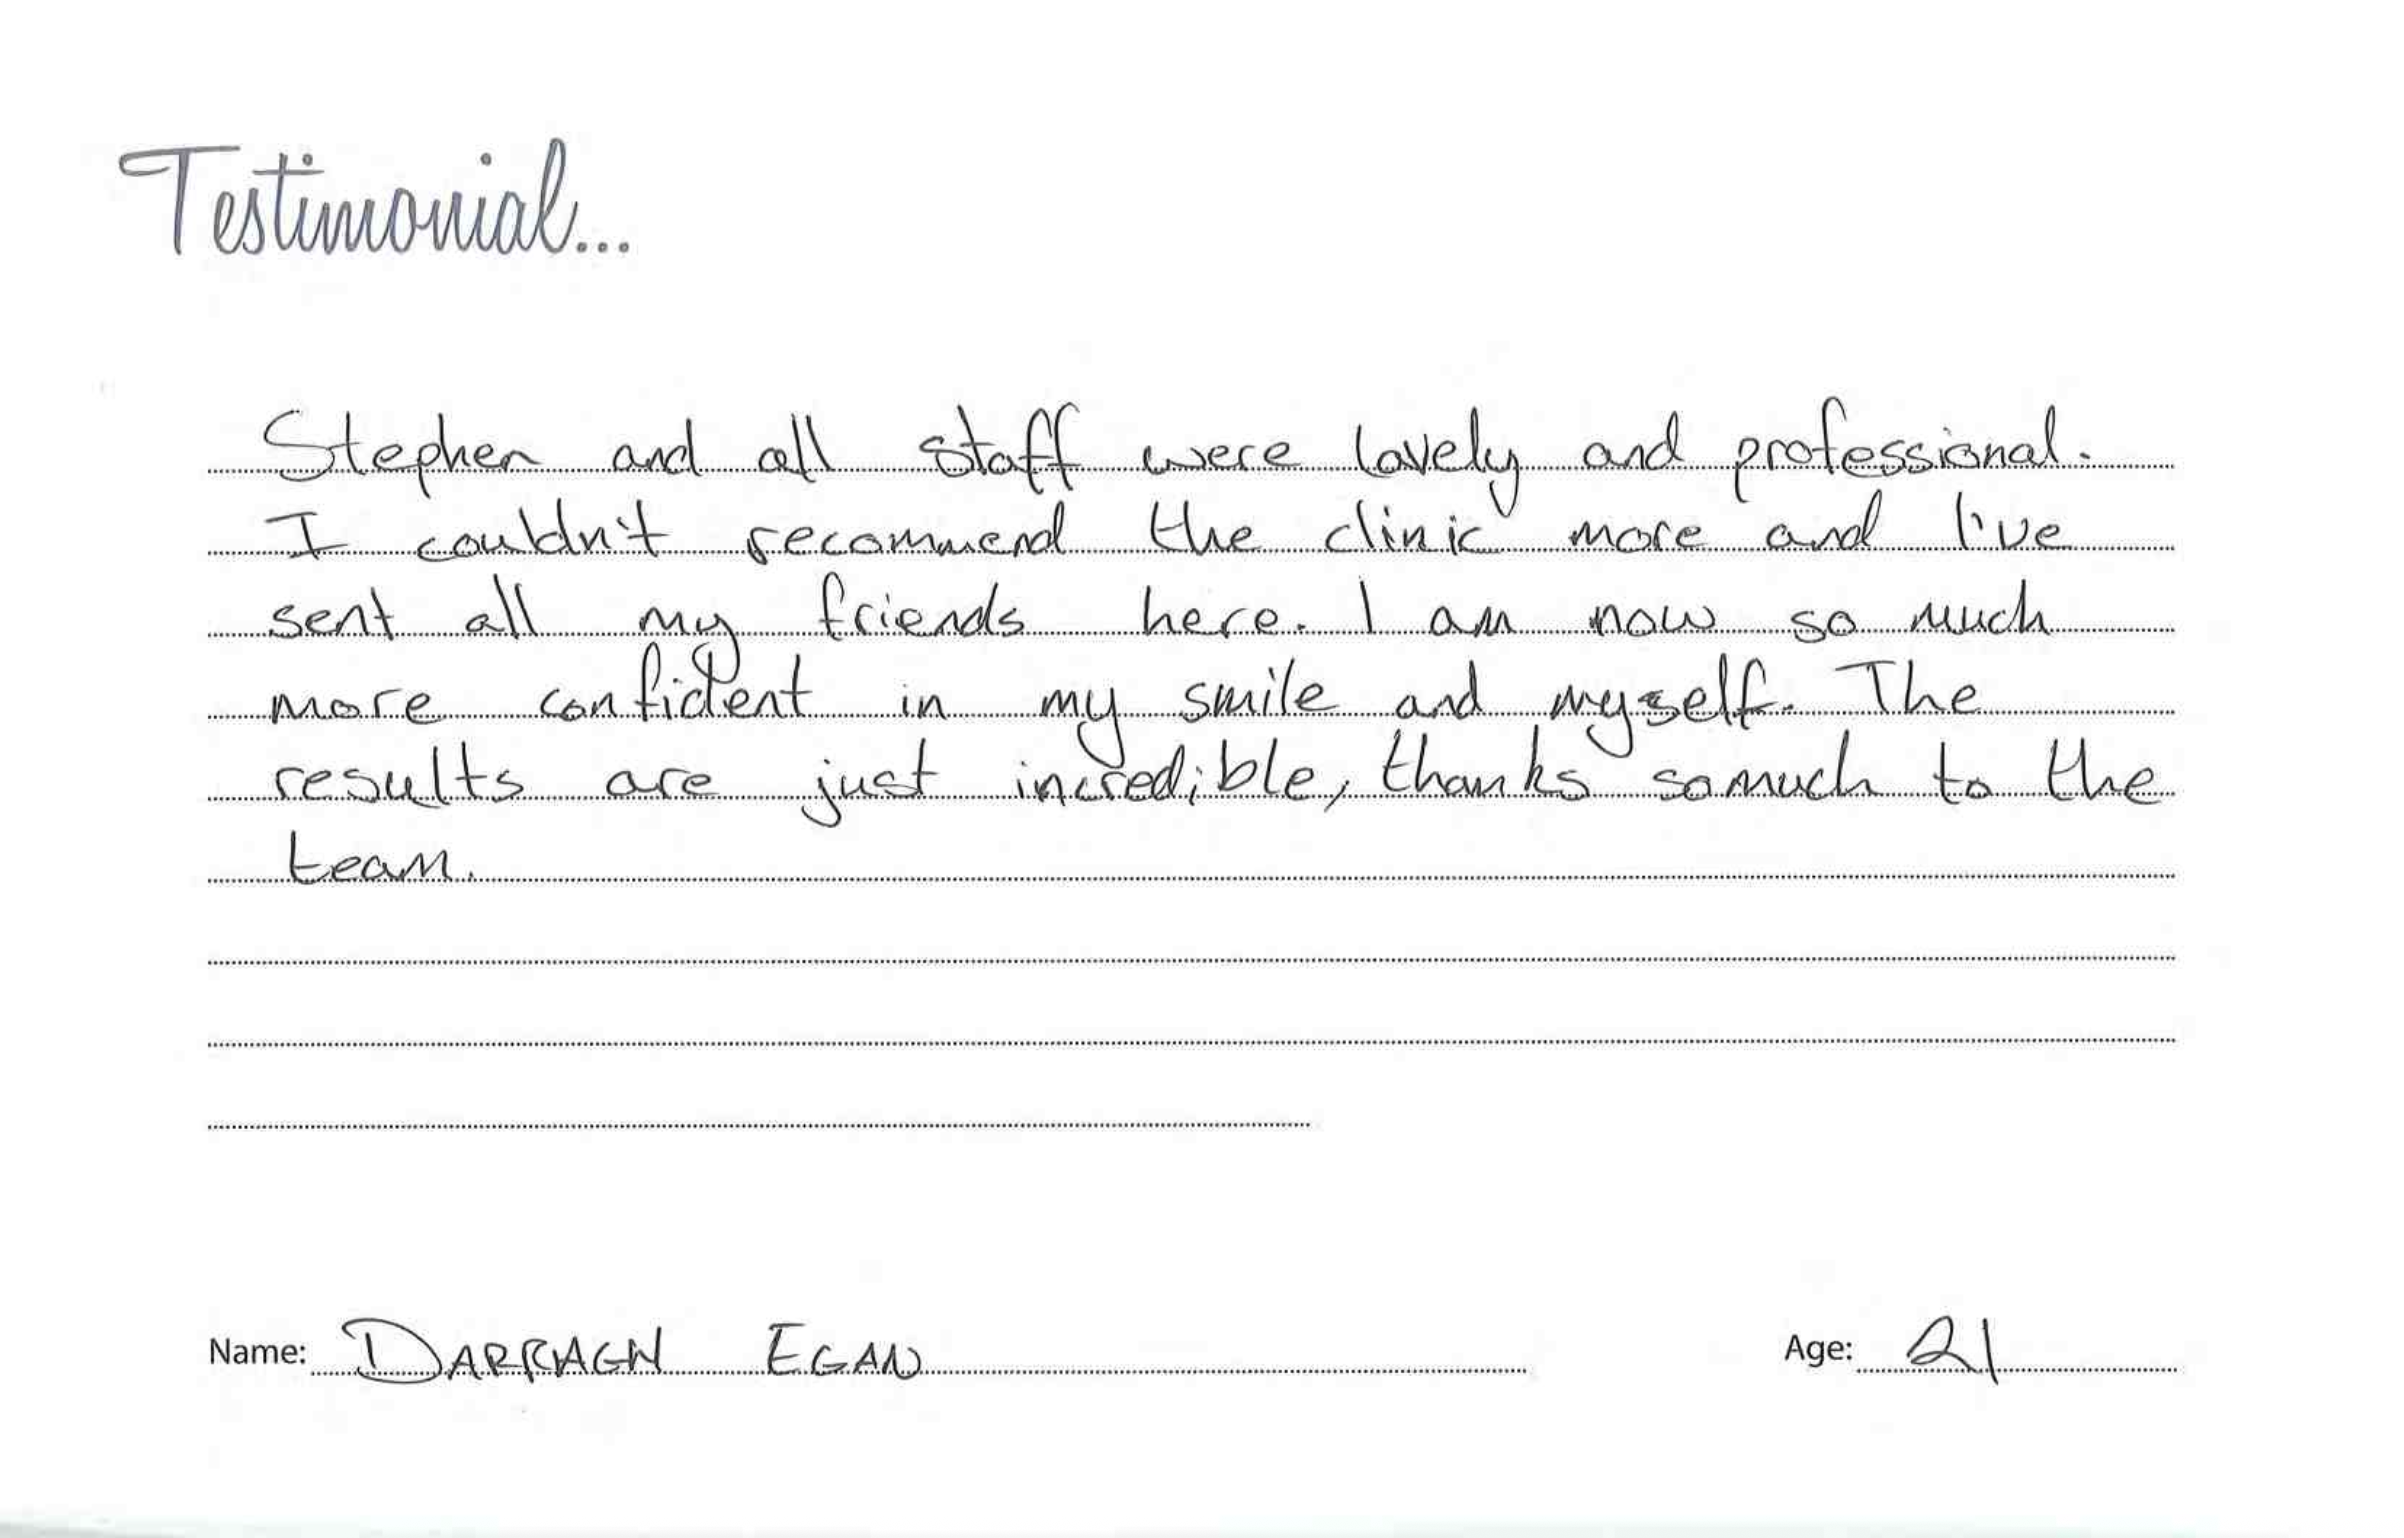 Testimonial...
Stephen and all staff were lovely and professional.
I couldn't recommend the clinic more and I've
sent all my friends here. I am now so much
more confident in my smile and myself. The
results are just incredible, thanks so much to the
team.
Name: DARRAGH EGAN Age: 21